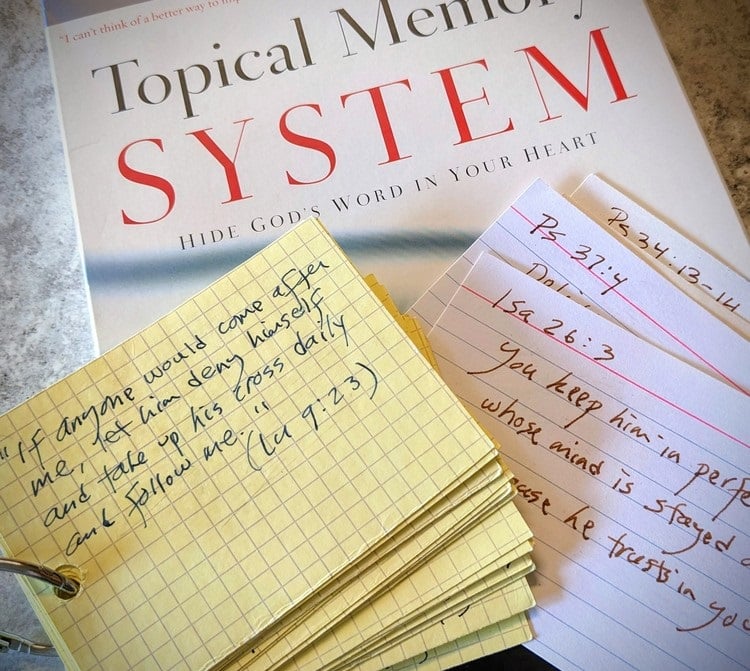 "I can't think of a better way to
Topical Memory
SYSTEM
HIDE GOD'S WORD IN YOUR HEART
"If anyone would come after
me, let him deny himself
and take up his cross daily
and follow me."
(Lu 9:23)
Ps 34:13-14
Ps 37:4
Isa 26:3
You keep him in
whose mind is stayed
he trusts in you